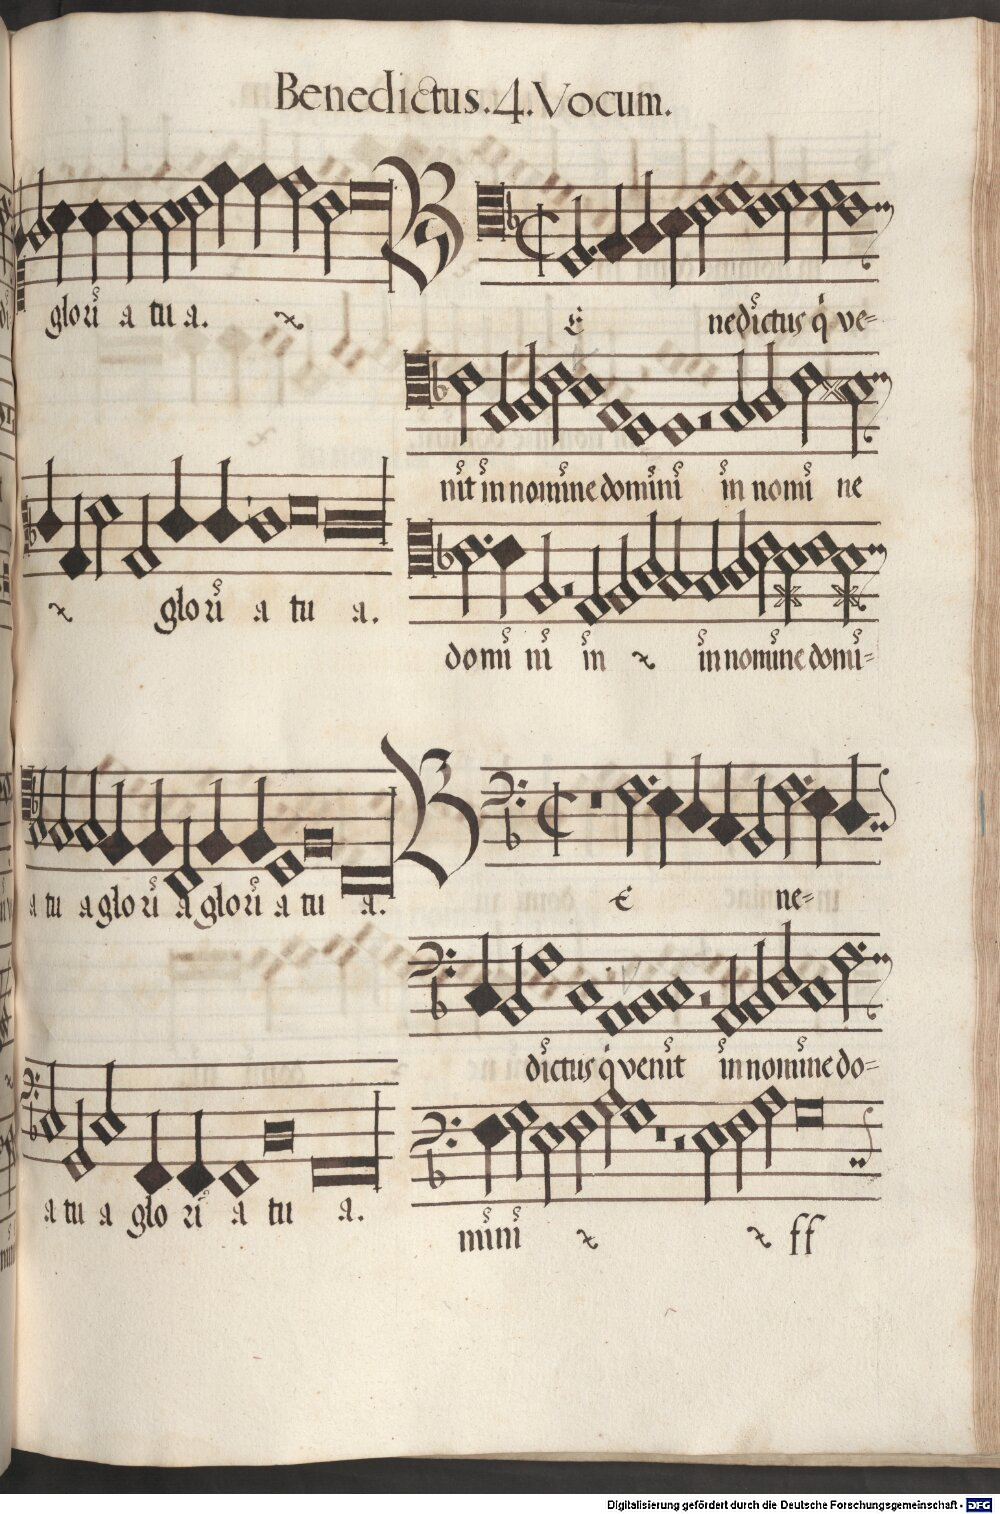 Benedictus. 4. Vocum.
glori a tu a.
B E nedictus q̇ ve=
nit in nomine domini in nomi ne
glori a tu a.
domi ni in in nomine domi=
a tu a glo ri a glo ri a tu a.
B E ne=
dictus q̇ venit in nomine do=
a tu a glo ri a tu a.
mini ff
Digitalisierung gefördert durch die Deutsche Forschungsgemeinschaft - DFG